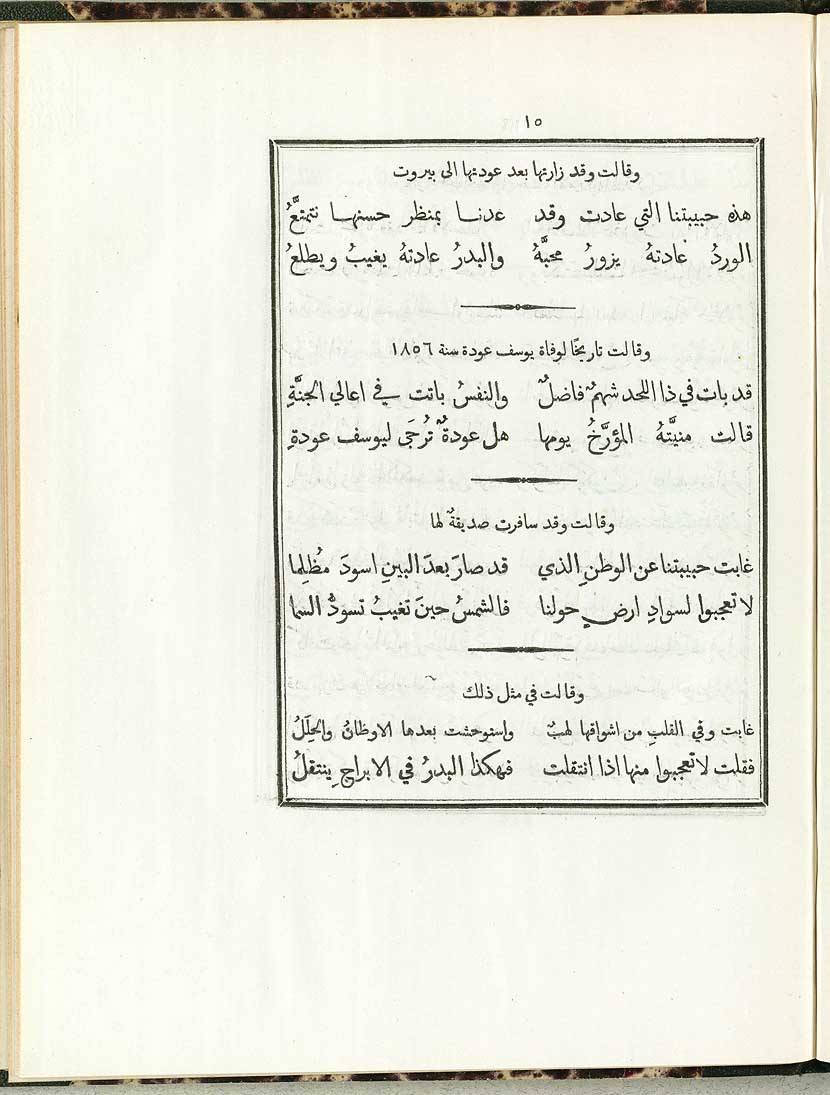 ١٥
وقالت وقد زارتها بعد عودتها الى بيروت
هذه حبيبتنا التي عادت وقد عدنا بمنظر حسنها نتمتَّعُ
الوردُ عادتهُ يزورُ محبَّهُ والبدرُ عادتهُ يغيبُ ويطلعُ
وقالت تاريخًا لوفاة يوسف عودة سنة ١٨٥٦
قد بات في ذا اللحد شهمٌ فاضلٌ والنفسُ باتت في اعالي الجنَّةِ
قالت منيَّتهُ المؤرَّخُ يومها هل عودةٌ تُرجَى ليوسف عودةِ
وقالت وقد سافرت صديقةٌ لها
غابت حبيبتنا عن الوطنِ الذي قد صارَ بعدَ البينِ اسودَ مظُلِما
لا تعجبوا لسوادِ ارضٍ حولنا فالشمسُ حينَ تغيبُ تسودُّ السما
وقالت في مثل ذلك
غابت وفي القلبِ من اشواقها لهبٌ واستوحشت بعدها الاوطانُ والحِلَلُ
فقلت لا تعجبوا منها اذا انتقلت فهكذا البدرُ في الابراجِ ينتقلُ